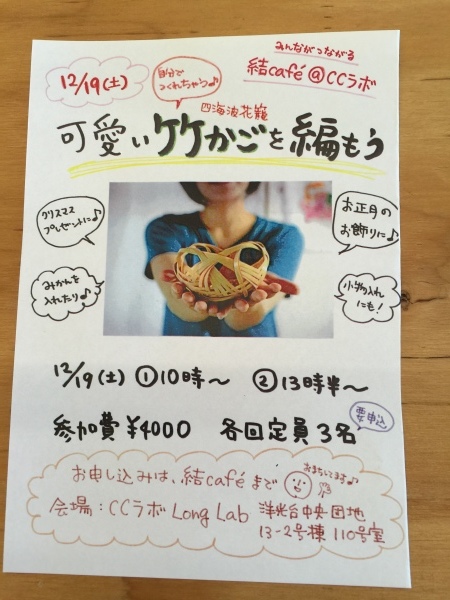 みんながつながる
結café@CCラボ
12/19(土)
自分で
つくれちゃう♪
四海波花籠
可愛い竹かごを編もう
クリスマス
プレゼントに♪
お正月の
お飾りに♪
みかんを
入れたり♪
小物入れ
にも!
12/19(土) ①10時〜 ②13時半〜
要申込
参加費¥4000 各回定員3名
お申し込みは、結caféまで
おまちしてます♪
会場:CCラボ Long Lab 洋光台中央団地
13-2号棟 110号室